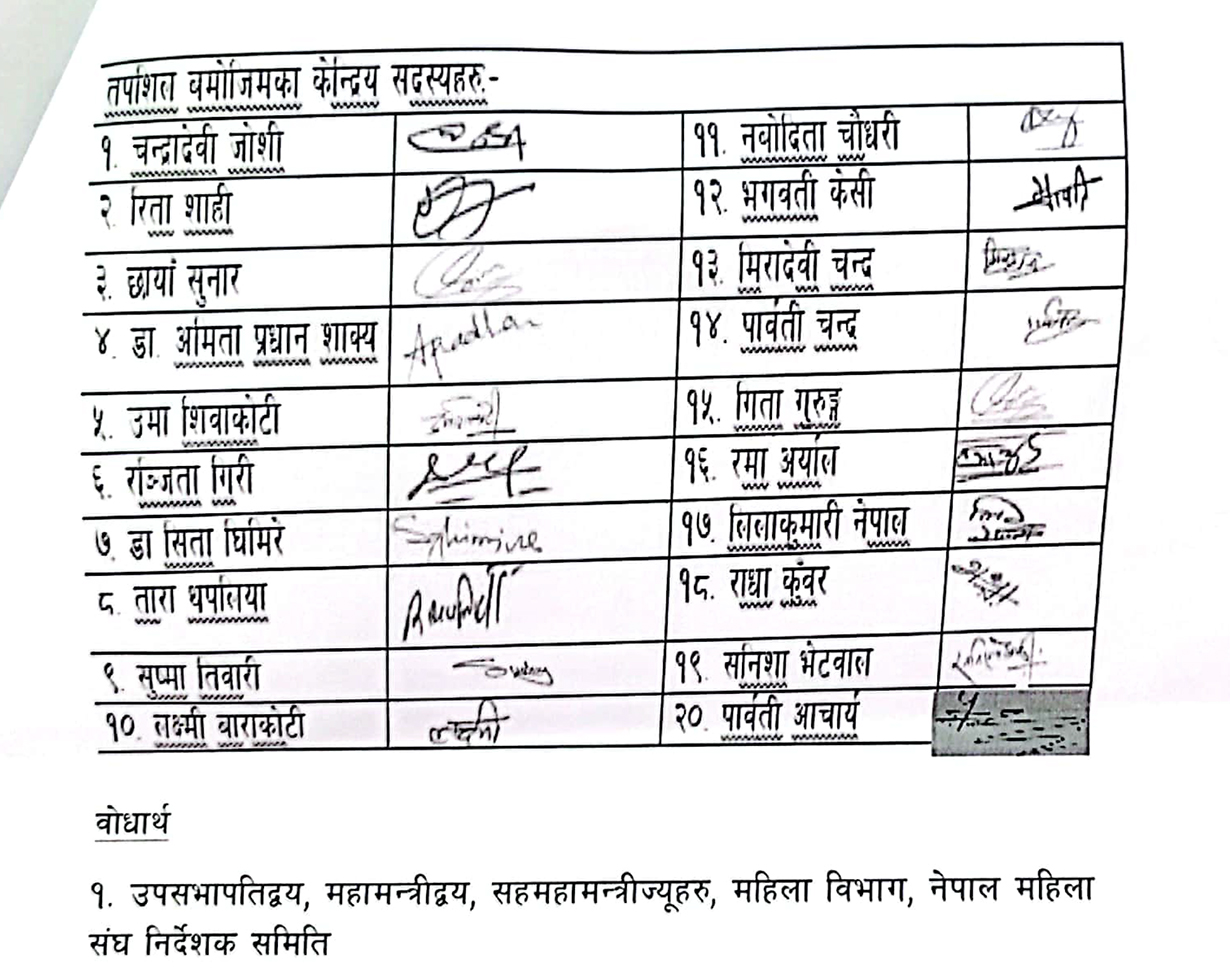 तपशिल बमोजिमका केन्द्रिय सदस्यहरु:-
१. चन्द्रादेवी जोशी
११. नवोदिता चौधरी
२. रिता शाही
१२. भगवती केसी
३. छायाँ सुनार
१३. मिरादेवी चन्द
४. डा. अमिता प्रधान शाक्य Apradhan
१४. पार्वती चन्द
५. उमा शिवाकोटी
१५. गिता गुरुङ्ग
६. रञ्जिता गिरी
१६. रमा अर्याल
७. डा सिता घिमिरे Sghimire
१७. लिलाकुमारी नेपाल
८. तारा थपलिया
१८. राधा कुंवर
९. सुष्मा तिवारी
१९. सनिशा भेटवाल
१०. लक्ष्मी बाराकोटी लक्ष्मी
२०. पार्वती आचार्य
वोधार्थ
१. उपसभापतिद्वय, महामन्त्रीद्वय, सहमहामन्त्रीज्यूहरु, महिला विभाग, नेपाल महिला
संघ निर्देशक समिति